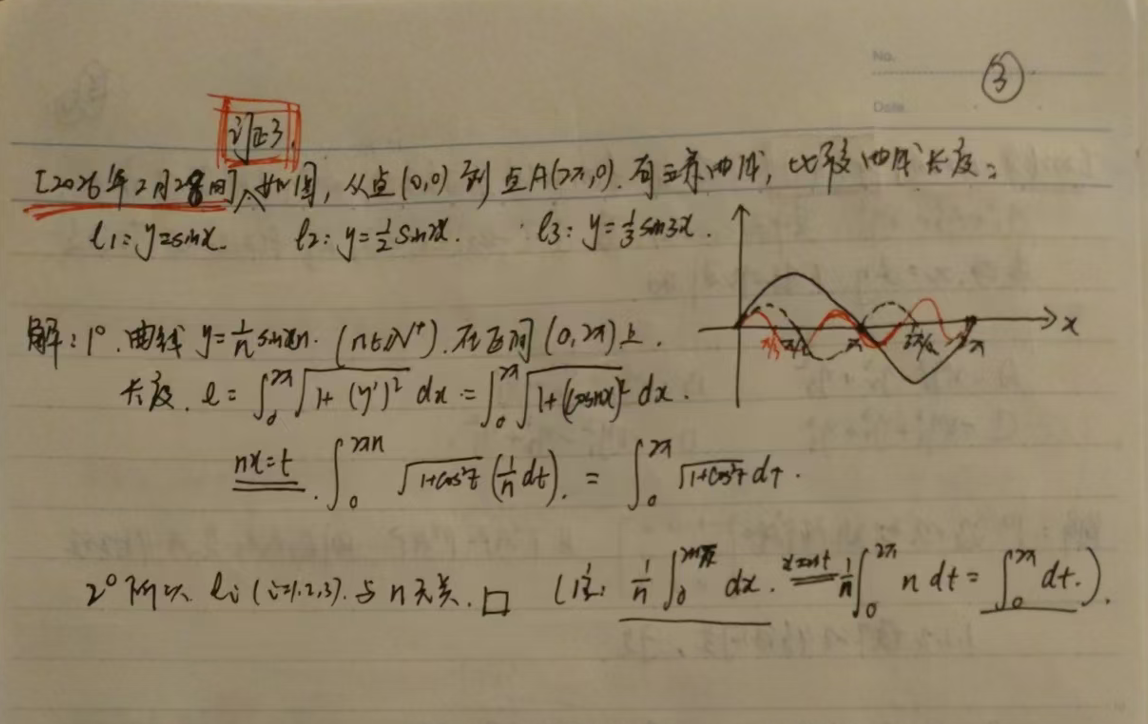 No.
③
Date
证3.
[2026年2月28日] 如图, 从点(0,0)到点A(2π,0).有三条曲线, 比较曲线长度:
l1: y=sinx. l2: y=½sin2x. l3: y=⅓sin3x.
解: 1°. 曲线 y=1/n sinxn. (n∈N⁺). 在区间(0,2π)上.
x
π/3 π/2 π 3π/2 2π
长度. l=∫₀^{2π} √(1+(y')²) dx = ∫₀^{2π} √(1+(cosnx)²) dx.
nx=t ∫₀^{2πn} √(1+cos²t) (1/n dt). = ∫₀^{2π} √(1+cos²t) dt.
2° 所以 li (i=1,2,3). 与n无关. □ (注: 1/n ∫₀^{2nπ} dx. x=nt 1/n ∫₀^{2π} n dt = ∫₀^{2π} dt.).